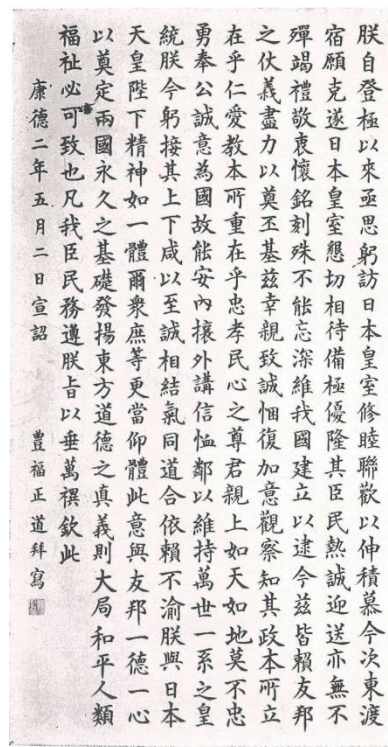 朕自登極以來亟思躬訪日本皇室修睦聯歡以伸積慕今次東渡
宿願克遂日本皇室懇切相待備極優隆其臣民熱誠迎送亦無不
殫竭禮敬衷懷銘刻殊不能忘深維我國建立以逮今茲皆賴友邦
之仗義盡力以奠丕基茲幸親致誠悃復加意觀察知其政本所立
在乎仁愛教本所重在乎忠孝民心之尊君親上如天如地莫不忠
勇奉公誠意為國故能安內攘外講信恤鄰以維持萬世一系之皇
統朕今躬接其上下咸以至誠相結氣同道合依賴不渝朕與日本
天皇陛下精神如一體爾衆庶等更當仰體此意與友邦一德一心
以奠定兩國永久之基礎發揚東方道德之真義則大局和平人類
福祉必可致也凡我臣民務遵朕旨以垂萬禩欽此
康德二年五月二日宣詔 豐福正道拜寫